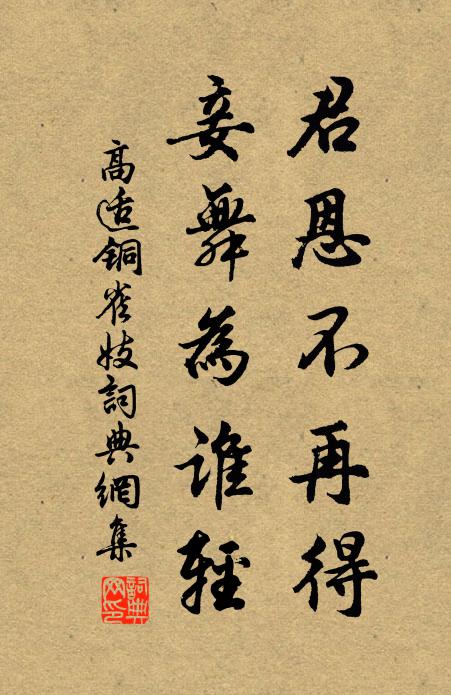 君恩不再得
妾舞為誰輕
高适銅雀妓詞典網集
詞典網印